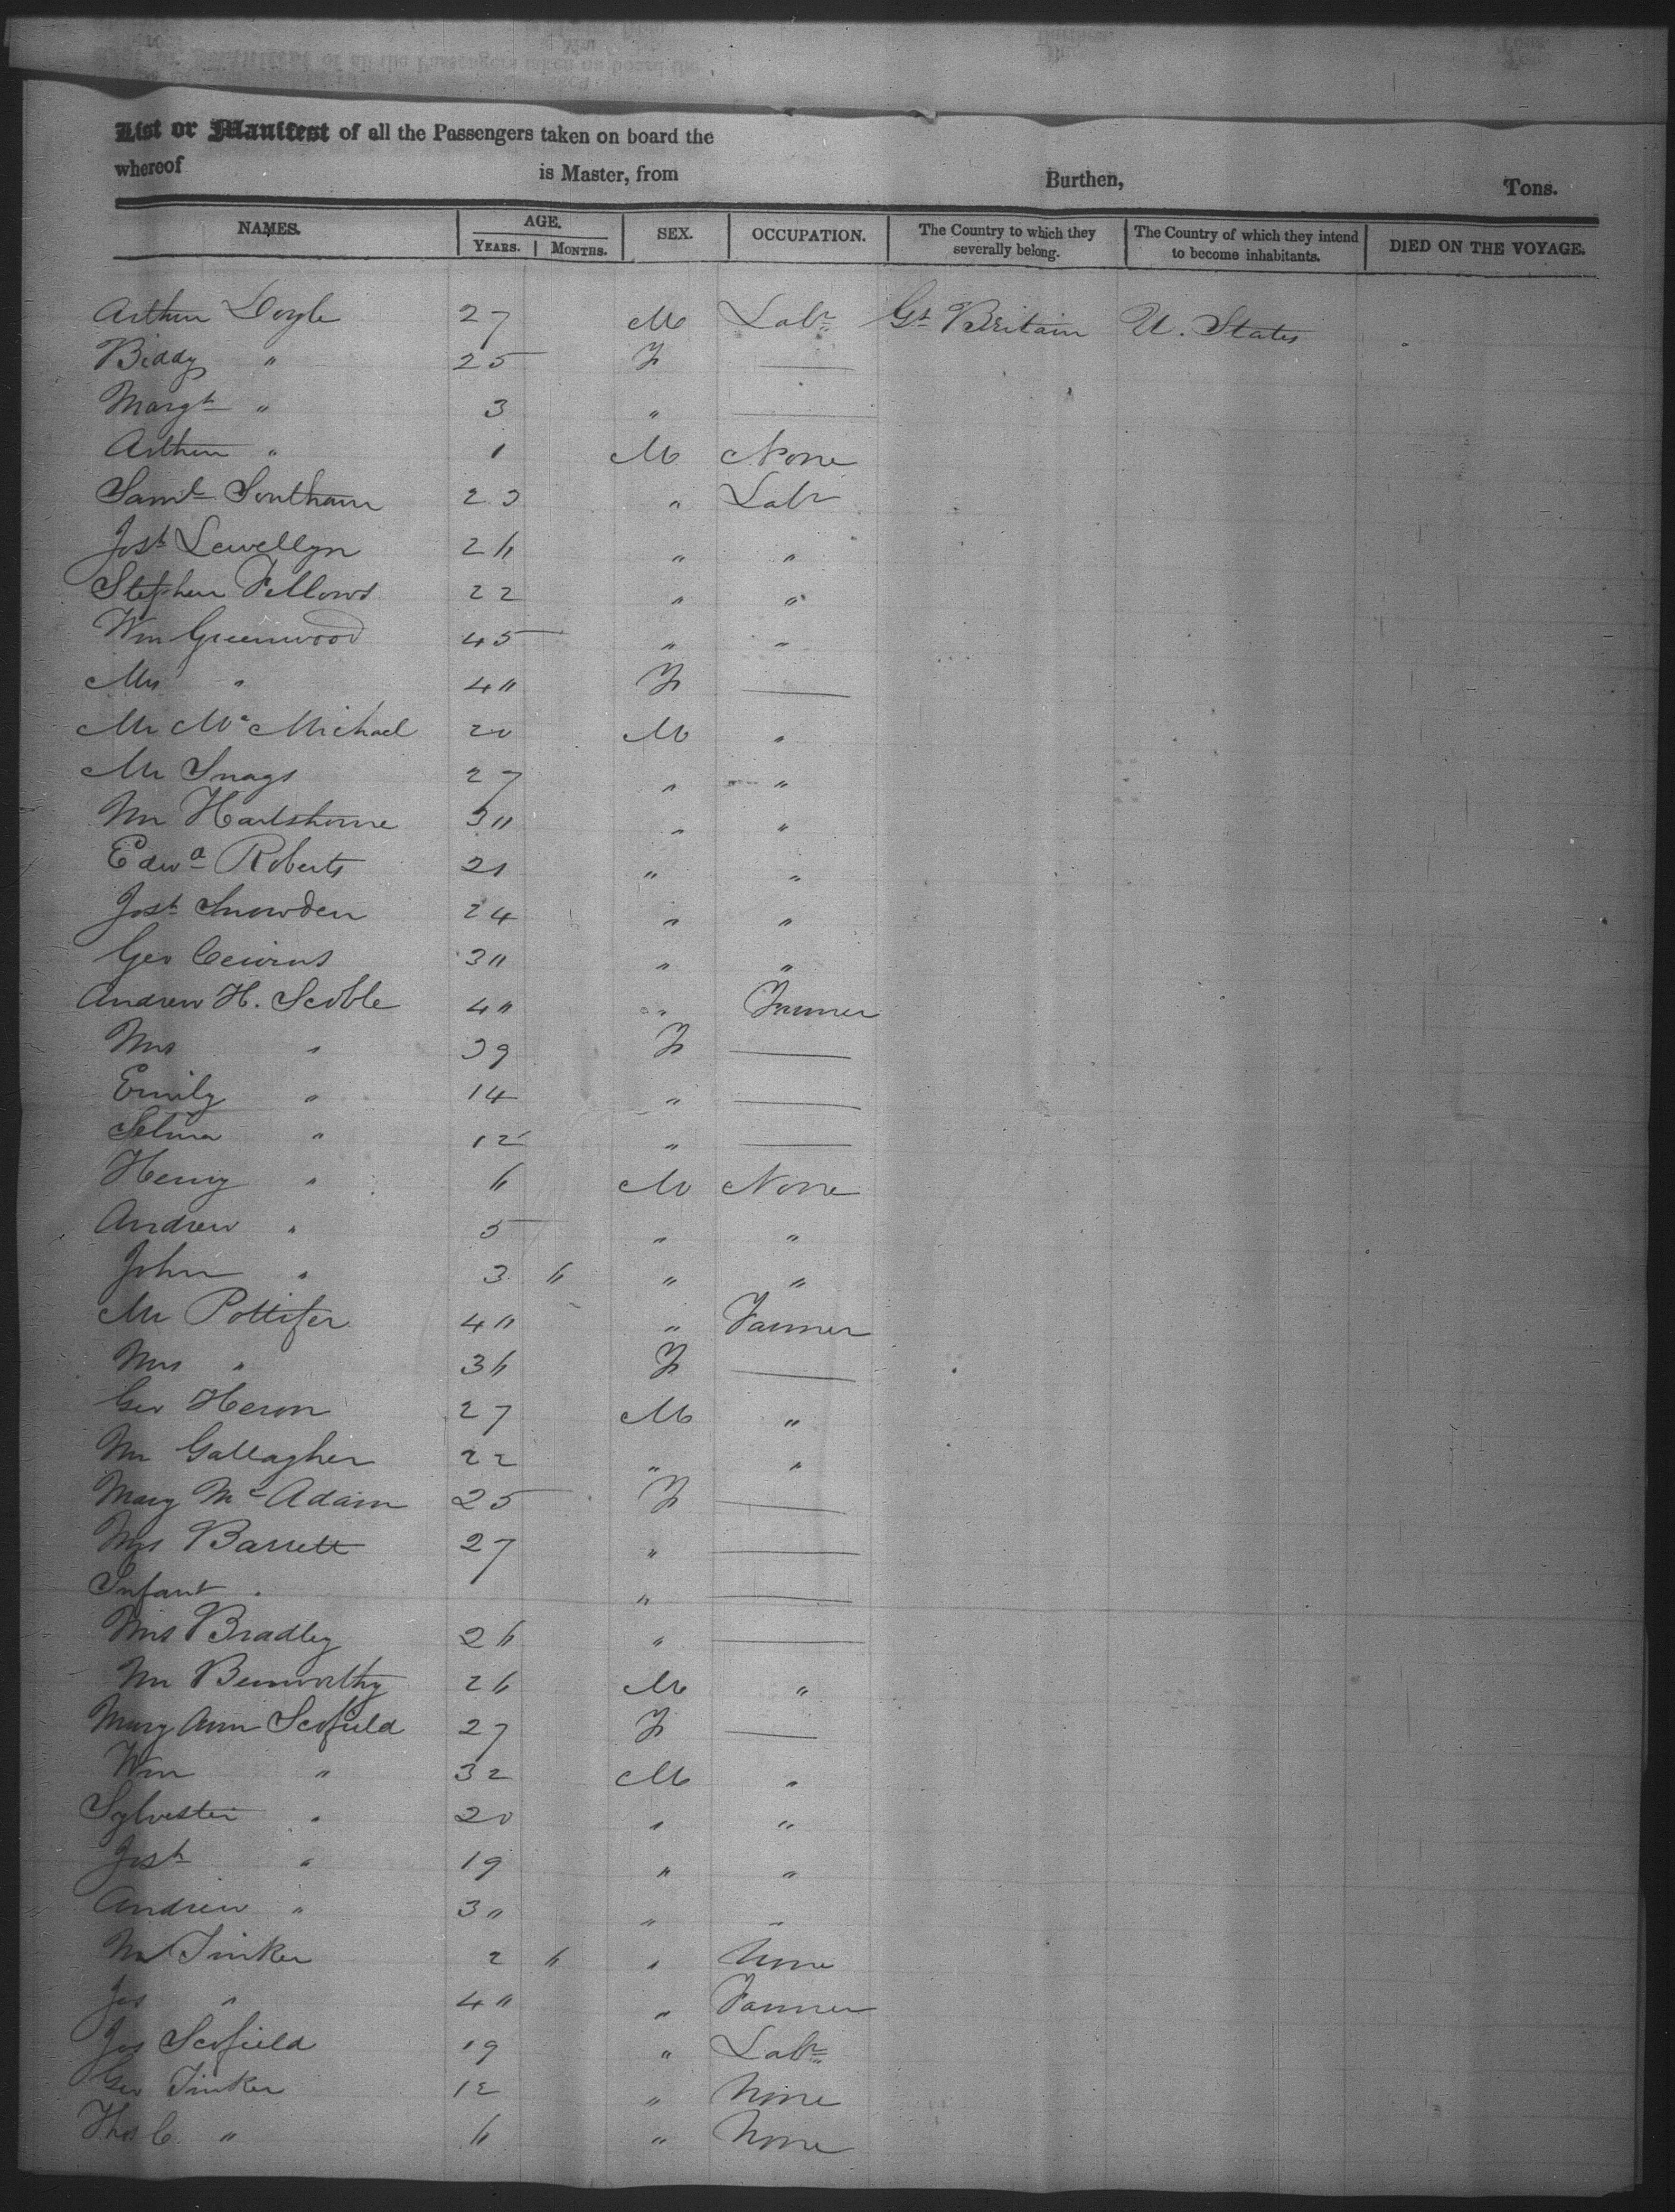 List or Manifest of all the Passengers taken on board the
whereof is Master, from Burthen, Tons.
NAMES. AGE. YEARS. MONTHS. SEX. OCCUPATION. The Country to which they severally belong. The Country of which they intend to become inhabitants. DIED ON THE VOYAGE.
Arthur Doyle 27 M Labr Gt Britain U. States
Biddy " 25 F —
Margt " 3 " —
Arthur " 1 M None
Saml Southam 23 " Labr
Josh Lewellyn 26 " "
Stephen Fellows 22 " "
Wm Greenwood 45 " "
Mrs " 40 F —
Mr McMichael 20 M "
Mr Snags 27 " "
Mr Hartshorne 30 " "
Edwd Roberts 21 " "
Josh Snowden 24 " "
Geo 30 " "
Andrew H. Scoble 40 " Farmer
Mrs " 39 F —
Emily " 14 " —
Selina " 12 " —
Henry " 6 M None
Andrew " 5 " "
John " 3 6 " "
Mr Pottifer 40 " Farmer
Mrs " 36 F —
Geo Heron 27 M "
Mr Gallagher 22 " "
Mary McAdam 25 F —
Mrs Barrett 27 " —
Infant " " —
Mrs Bradley 26 " —
Mr Benworthy 26 M "
Mary Ann Scofield 27 F —
Wm " 32 M "
Sylvester " 20 " "
Josh " 19 " "
Andrew " 30 " "
Mr Tinker 2 6 " None
Jos " 40 " Farmer
Jos Scofield 19 " Labr
Geo Tinker 12 " None
Thos C. " 6 " None